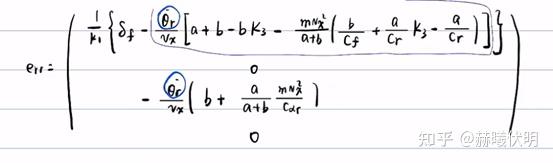 err = ( 1/k1 { δf - θ̇r/vx [ a + b - b K3 - mvx²/(a+b) ( b/Cf + a/Cr K3 - a/Cr ) ] }
0
- θ̇r/vx ( b + a/(a+b) mvx²/Cαr )
0 )
知乎 @赫曦伏明